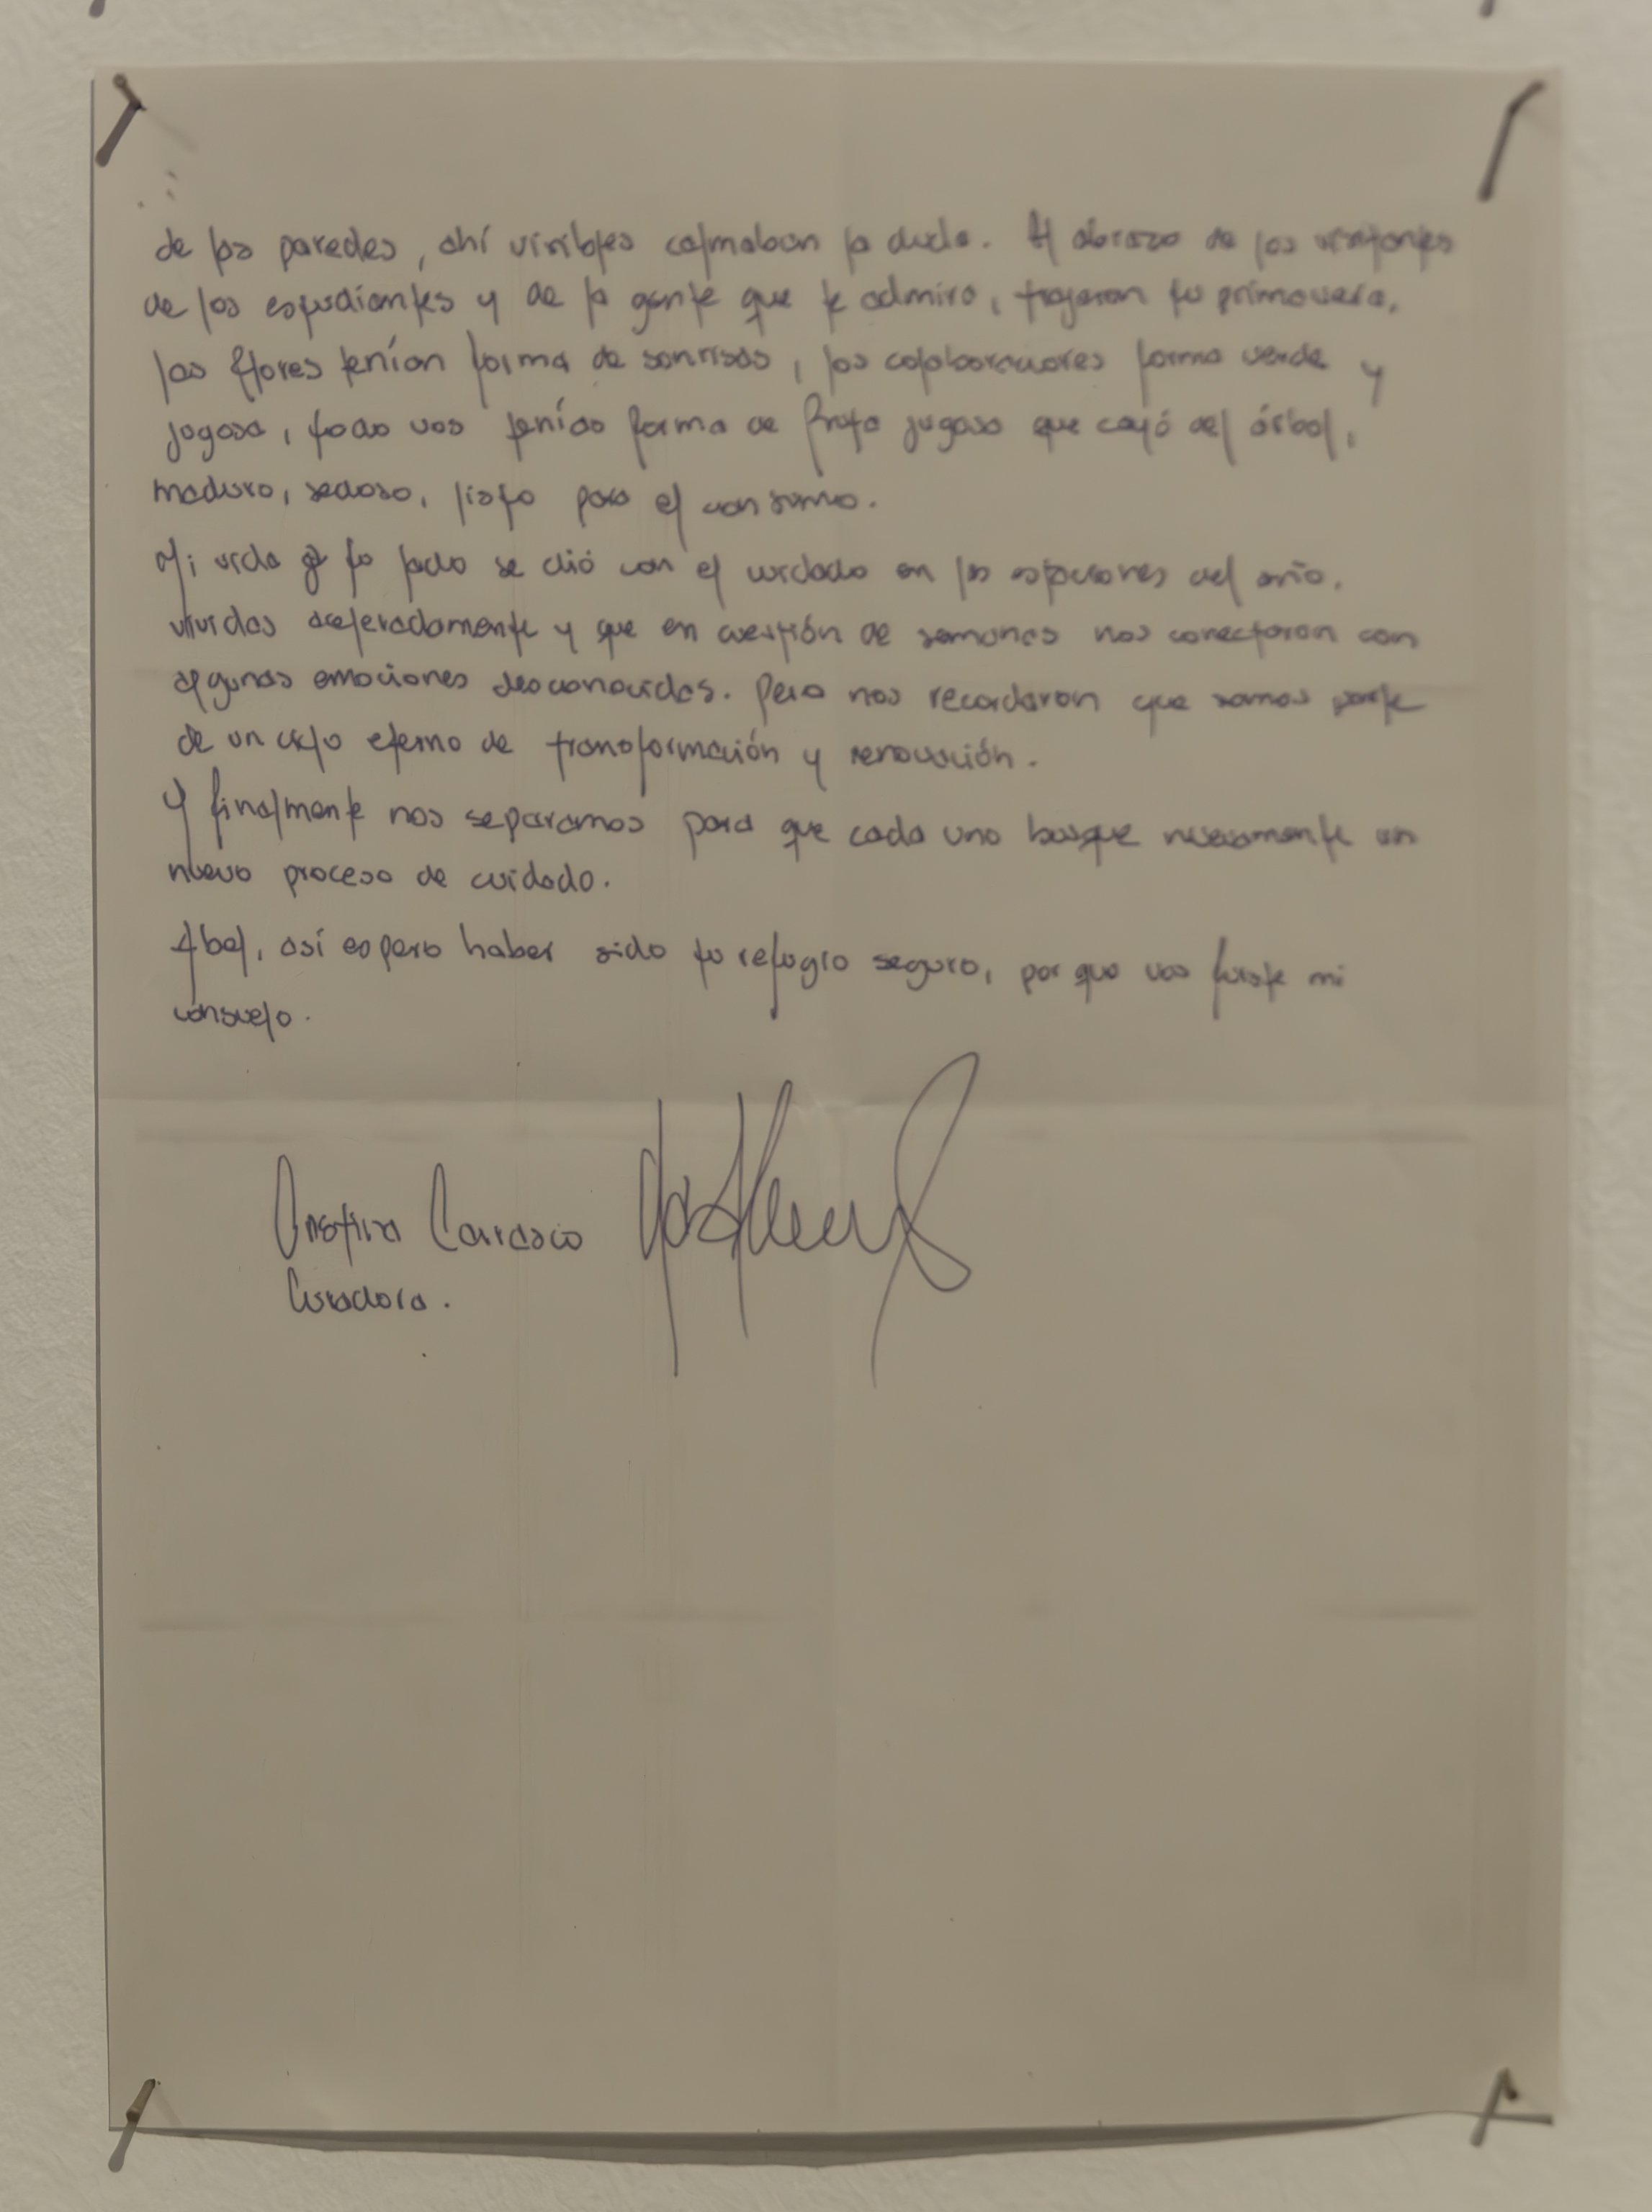 de las paredes, ahí visibles calmaban la duda. El abrazo de los visitantes
de los estudiantes y de la gente que te admira, trajeron tu primavera.
las flores tenían forma de sonrisas, los colaboradores forma verde y
jugosa, todo vos tenías forma de fruta jugosa que cayó del árbol,
maduro, sedoso, listo para el consumo.
Mi vida a tu lado se dió con el cuidado en las estaciones del año.
vividas aceleradamente y que en cuestión de semanas nos conectaron con
algunas emociones desconocidas. Pero nos recordaron que somos parte
de un ciclo eterno de transformación y renovación.
Y finalmente nos separamos para que cada uno busque nuevamente un
nuevo proceso de cuidado.
Abel, así espero haber sido tu refugio seguro, por que vos fuiste mi
consuelo.
Cristina Carrasco
Curadora.